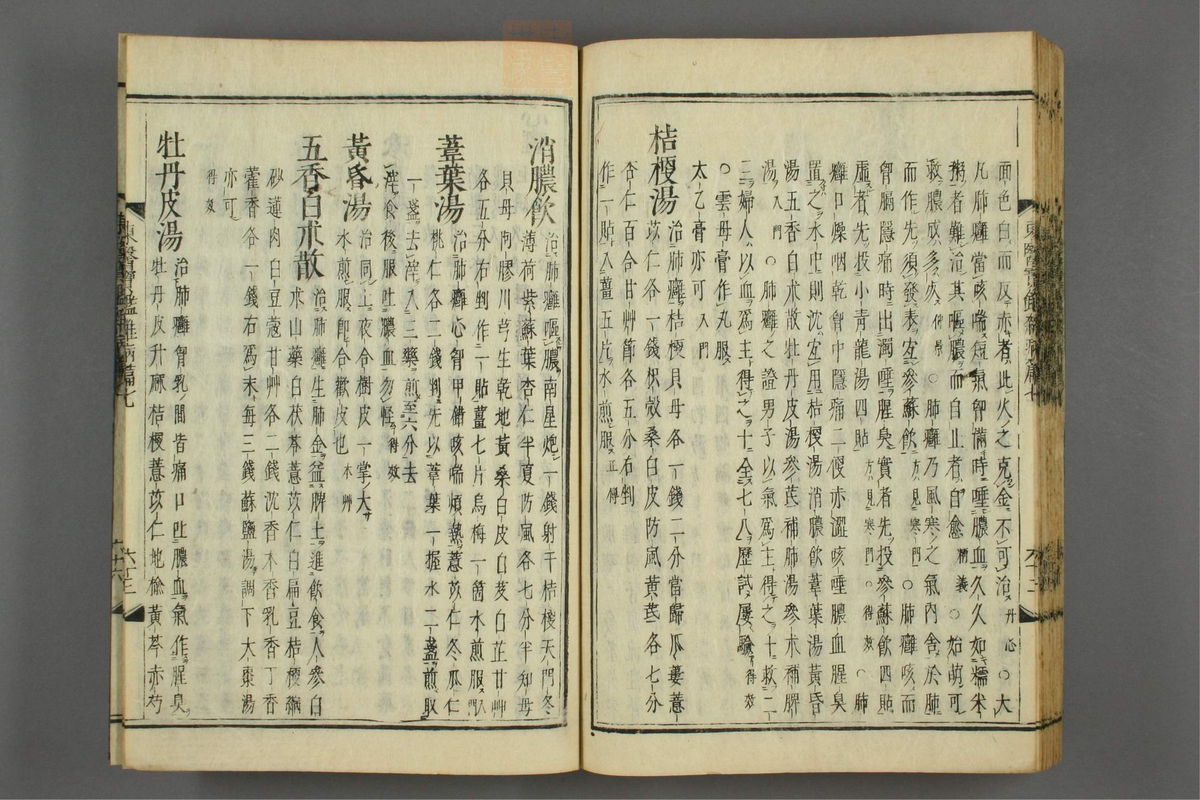 面色白而反赤者此火之克金不可治 丹心 ○大
凡肺癰當咳喘短氣胷滿時唾膿血久久如糯米
粥者難治其嘔膿而自止者自愈 精義 ○始萌可
救膿成多死 仲景 ○肺癰乃風寒之氣內舍於肺
而作先須發表宜參蘇飮 方見寒門 ○肺癰咳而
胷膈隱痛時出濁唾腥臭實者先投參蘇飮四貼
虛者先投小靑龍湯四貼 方見寒門 ○得效 ○肺
癰口燥咽乾胷中隱痛二便赤澁咳唾膿血腥臭
置之水中則沈宜用桔梗湯消膿飮葦葉湯黃昏
湯五香白朮散牡丹皮湯參芪補肺湯參朮補脾
湯 入門 ○肺癰之證男子以氣爲主得之十救二
三婦人以血爲主得之十全七八歷試屢驗 得效
○雲母膏作丸服
太乙膏亦可 入門
桔梗湯 治肺癰桔梗貝母各一錢二分當歸瓜蔞薏
苡仁各一錢枳殼桑白皮防風黃芪各七分
杏仁百合甘艸節各五分右剉
作一貼入薑五片水煎服 正傳
消膿飮 治肺癰嘔膿南星炮一錢射干桔梗天門冬
薄荷紫蘇葉杏仁半夏防風各七分半知母
貝母阿膠川芎生乾地黃桑白皮白芨白芷甘艸
各五分右剉作一貼薑七片烏梅一箇水煎服 入門
葦葉湯 治肺癰心胷甲錯咳喘煩熱薏苡仁冬瓜仁
桃仁各二錢剉先以葦葉一握水二盞煎取
一盞去滓入三藥煎至六分去
滓食後服吐膿血勿怪 得效
黃昏湯 治同上夜合樹皮一掌大
水煎服卽合歡皮也 本艸
五香白朮散 治肺癰生肺金益脾土進飮食人參白
朮山藥白茯苓薏苡仁白扁豆桔梗縮
砂蓮肉白豆蔲甘艸各二錢沈香木香乳香丁香
藿香各一錢右爲末每三錢蘇鹽湯調下大棗湯
亦可
得效
牡丹皮湯 治肺癰胷乳間皆痛口吐膿血氣作腥臭
牡丹皮升麻桔梗薏苡仁地楡黃芩赤芍
東醫寶鑑雜病篇七